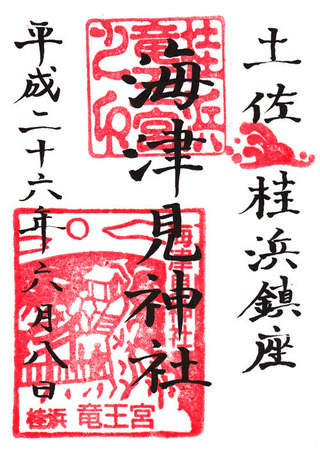 土佐桂浜鎮座
海津見神社
平成二十六年六月八日
桂浜
竜宮
海津見神社
桂浜 竜王宮